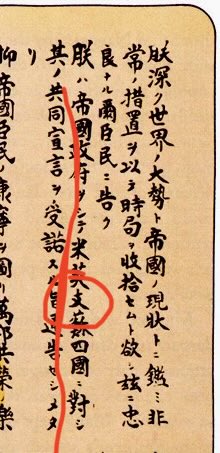 朕深ク世界ノ大勢ト帝國ノ現狀トニ鑑ミ非
常ノ措置ヲ以テ時局ヲ收拾セムト欲シ茲ニ忠
良ナル爾臣民ニ告ク
朕ハ帝國政府ヲシテ米英支蘇四國ニ對シ
其ノ共同宣言ヲ受諾スル旨通告セシメタ
リ
抑帝國臣民ノ康寧ヲ圖リ萬邦共榮ノ樂